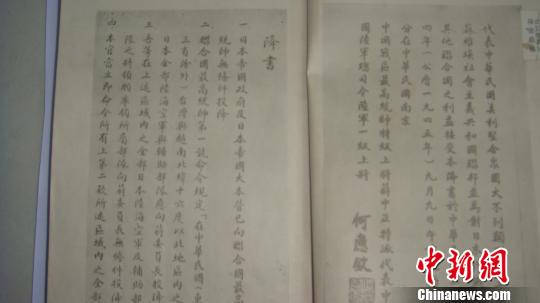 代表中華民國美利堅合眾國大不列顛
蘇維埃社會主義共和國聯邦並為對日
其他聯合國之利益接受本降書於中華
四年(公曆一九四五年)九月九日
分在中華民國南京
中國戰區最高統帥特級上將蔣中正特派代表中
國陸軍總司令陸軍一級上將
何應欽
降書
一日本帝國政府及日本帝國大本營已向聯合國最高
統帥無條件投降
二聯合國最高統帥第一號命令規定「在中華民國(東
三省除外)台灣與越南北緯十六度以北地區之
日本全部陸海空軍與輔助部隊應向蔣委員長投降
三吾等在上述區域內之全部日本陸海空軍及輔助部
隊之將領願率領所屬部隊向蔣委員長無條件投降
四本官當立即命令所有上第二款所述區域內之全部
中新网
www.chinanews.com